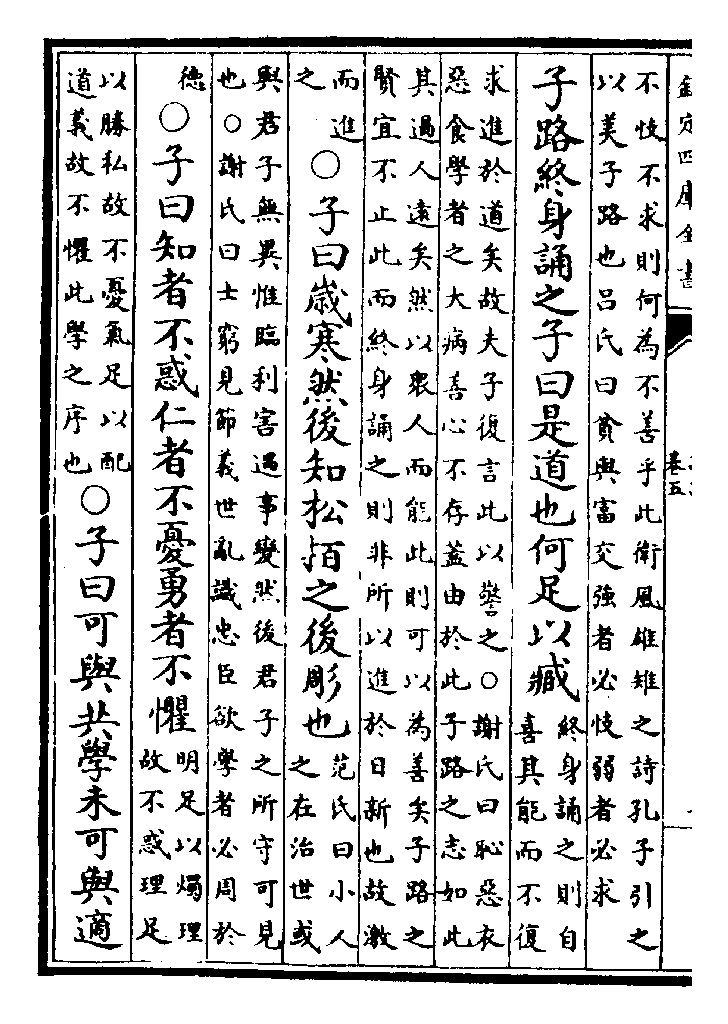 欽定四庫全書
卷五
不忮不求則何為不善乎此衛風雄雉之詩孔子引之
以美子路也呂氏曰貧與富交強者必忮弱者必求
子路終身誦之子曰是道也何足以臧
終身誦之則自
喜其能而不復
求進於道矣故夫子復言此以警之○謝氏曰恥惡衣
惡食學者之大病善心不存蓋由於此子路之志如此
其過人遠矣然以衆人而能此則可以為善矣子路之
賢宜不止此而終身誦之則非所以進於日新也故激
而進
之
○子曰歲寒然後知松栢之後彫也
范氏曰小人
之在治世或
與君子無異惟臨利害遇事變然後君子之所守可見
也○謝氏曰士窮見節義世亂識忠臣欲學者必周於
德
○子曰知者不惑仁者不憂勇者不懼
明足以燭理
故不惑理足
以勝私故不憂氣足以配
道義故不懼此學之序也
○子曰可與共學未可與適